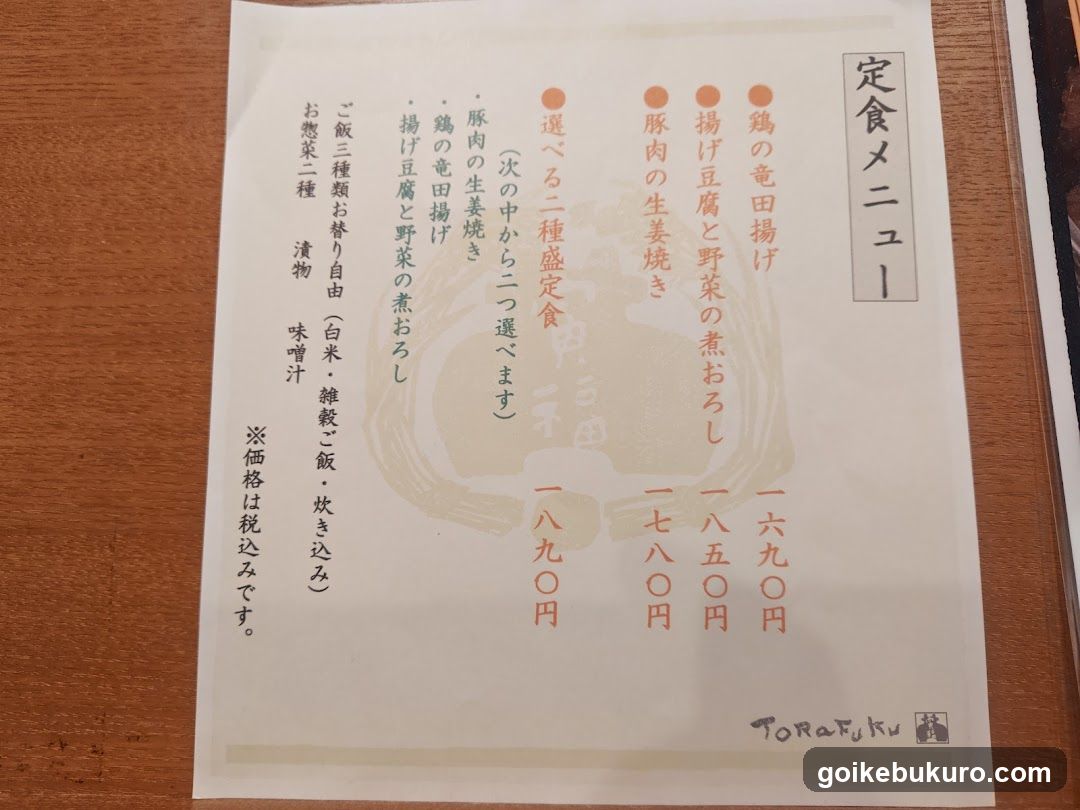 定食メニュー
●鶏の竜田揚げ 一六九〇円
●揚げ豆腐と野菜の煮おろし 一八五〇円
●豚肉の生姜焼き 一七八〇円
●選べる二種盛定食 一八九〇円
（次の中から二つ選べます）
・豚肉の生姜焼き
・鶏の竜田揚げ
・揚げ豆腐と野菜の煮おろし
ご飯三種類お替り自由（白米・雑穀ご飯・炊き込み）
お惣菜二種 漬物 味噌汁
※価格は税込みです。
寅福
TORaFuKu
goikebukuro.com